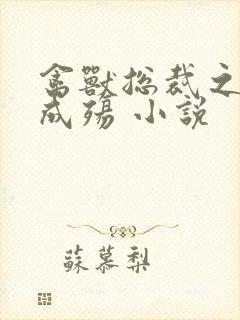 禽獸總裁之
成殤 小說
蘇慕梨